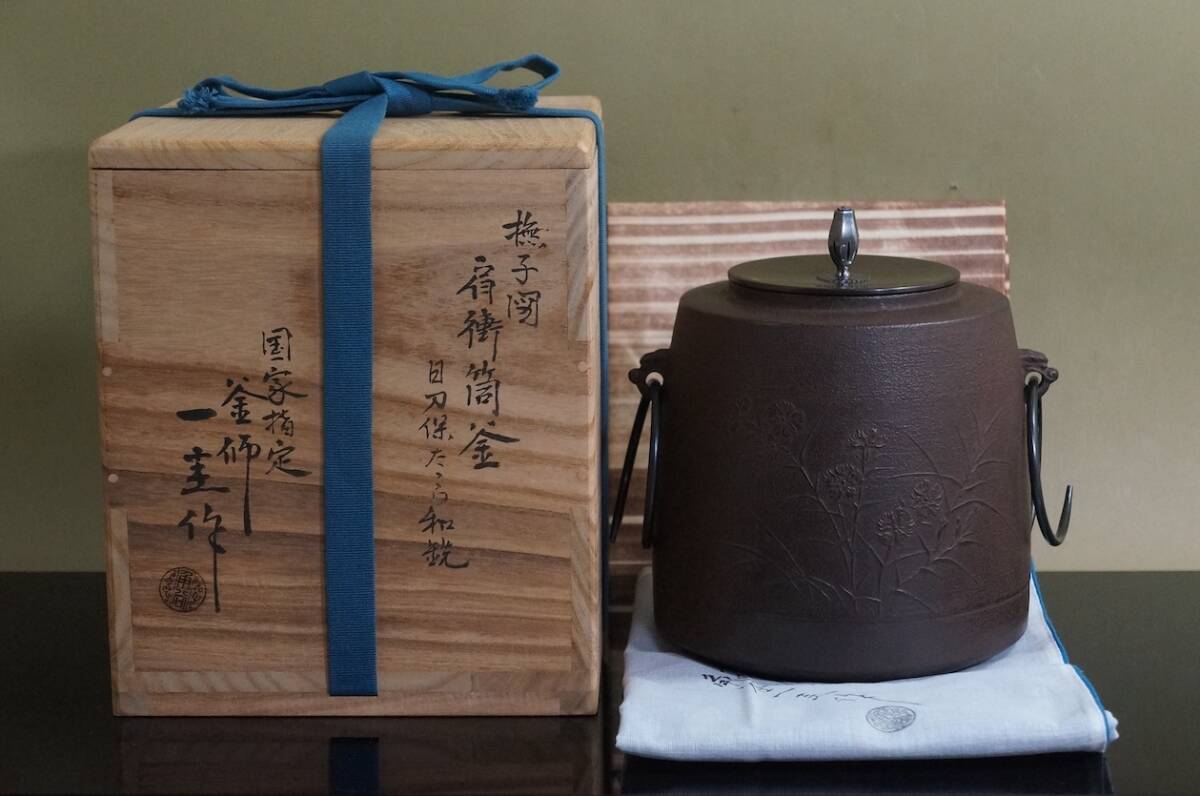 撫子図
肩衝筒釜
日刀保たたら和銑
国家指定
釜師
一圭作